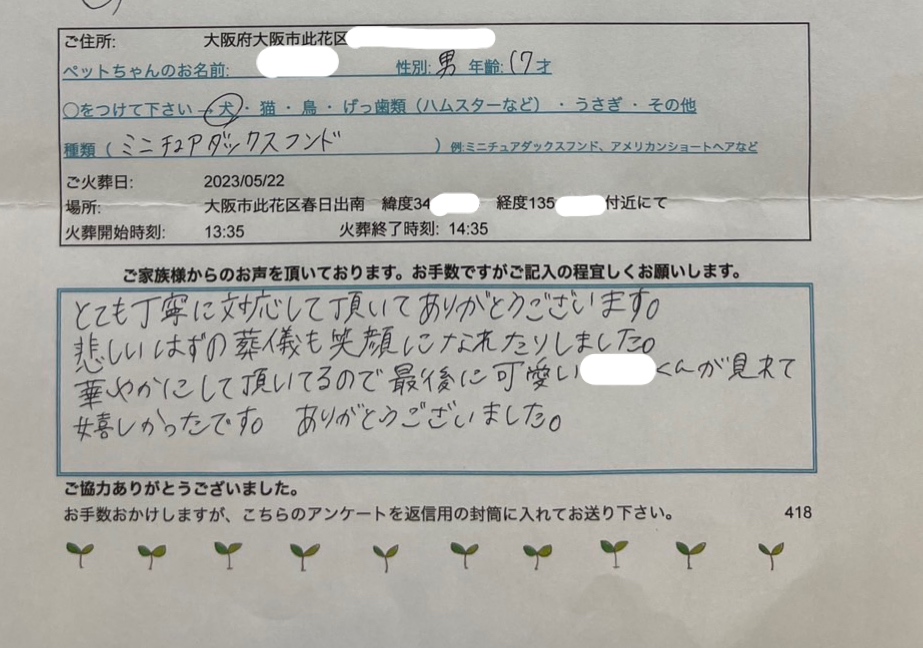 ご住所: 大阪府大阪市此花区
ペットちゃんのお名前: 性別: 男 年齢: 17才
○をつけて下さい → 犬・猫・鳥・げっ歯類（ハムスターなど）・うさぎ・その他
種類（ミニチュアダックスフンド）例:ミニチュアダックスフンド、アメリカンショートヘアなど
ご火葬日: 2023/05/22
場所: 大阪市此花区春日出南 緯度34 経度135 付近にて
火葬開始時刻: 13:35 火葬終了時刻: 14:35
ご家族様からのお声を頂いております。お手数ですがご記入の程宜しくお願いします。
とても丁寧に対応して頂いてありがとうございます。
悲しいはずの葬儀も笑顔になれたりしました。
華やかにして頂いてるので最後に可愛い くんが見れて
嬉しかったです。 ありがとうございました。
ご協力ありがとうございました。
お手数おかけしますが、こちらのアンケートを返信用の封筒に入れてお送り下さい。 418